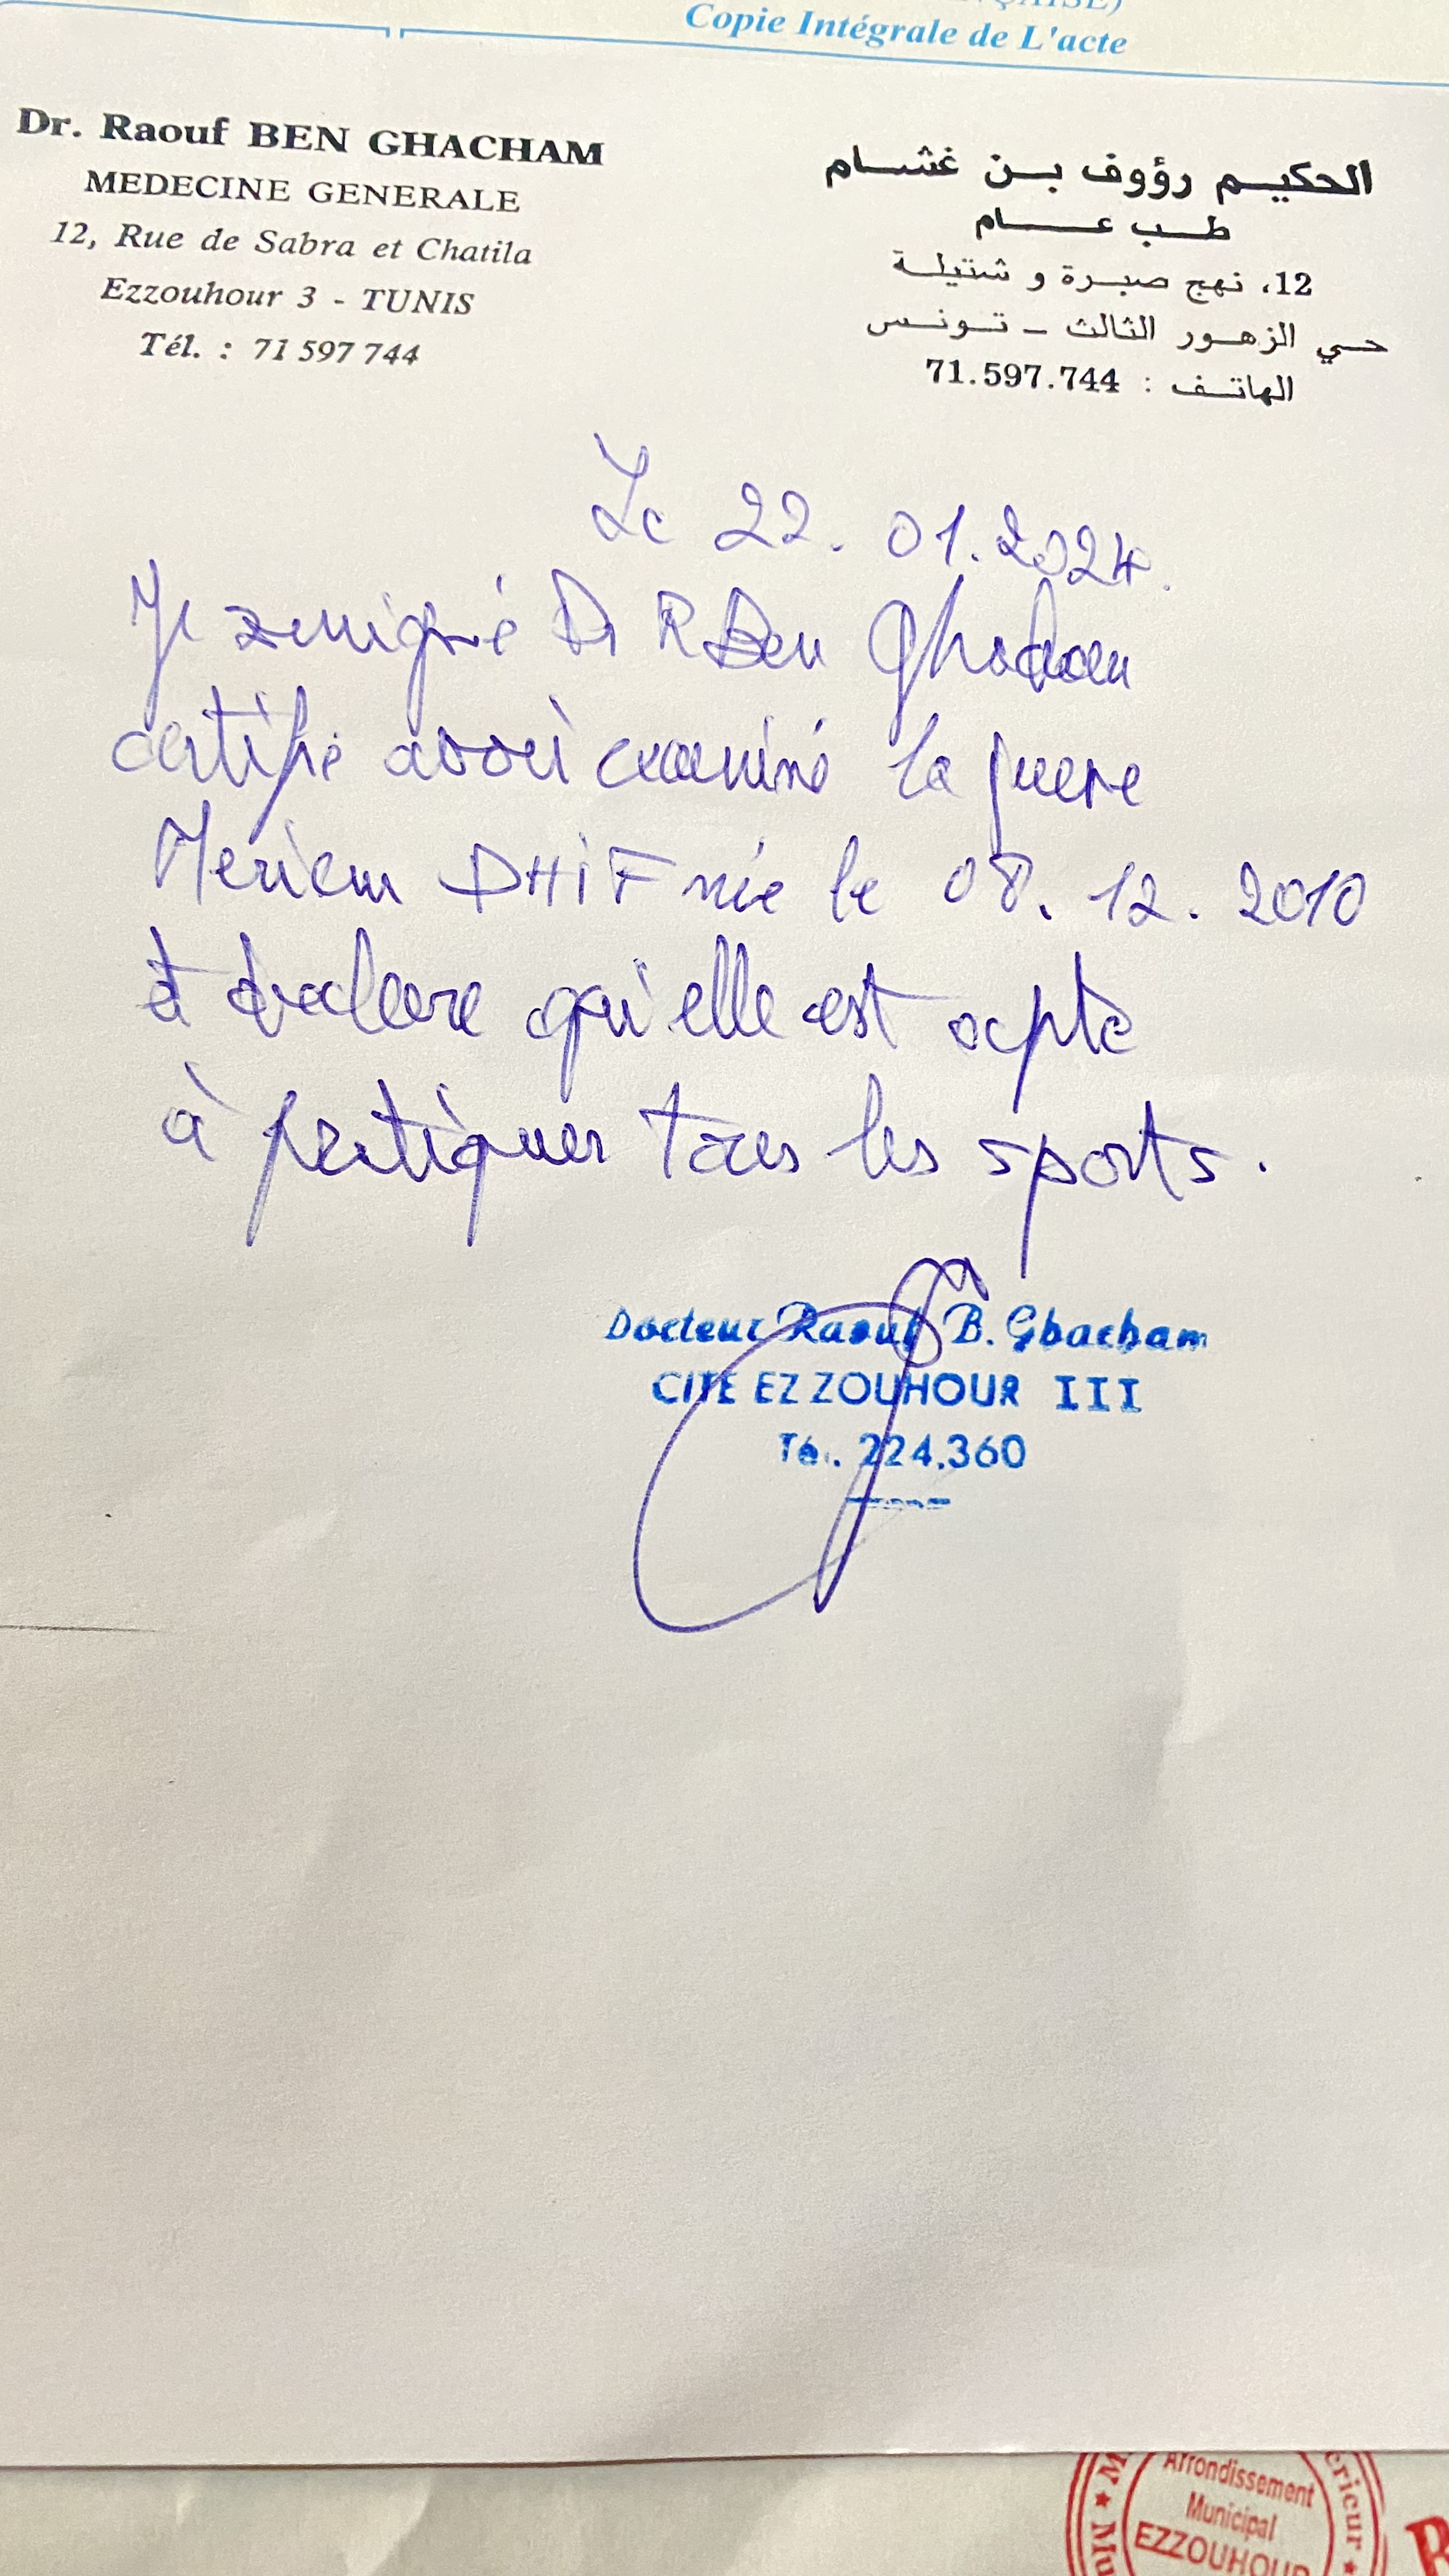 Copie Intégrale de L'acte
Dr. Raouf BEN GHACHAM
MEDECINE GENERALE
12, Rue de Sabra et Chatila
Ezzouhour 3 - TUNIS
Tél. : 71 597 744
الحكيم رؤوف بن غشام
طب عام
12، نهج صبرة و شتيلة
حي الزهور الثالث - تونس
الهاتف : 71.597.744
Le 22. 01. 2024.
Je soussigné Dr R Ben Ghacham
certifie avoir examiné la jeune
Meriem DHIF née le 08. 12. 2010
et declare qu'elle est apte
à pratiquer tous les sports.
Docteur Raouf B. Ghacham
CITE EZ ZOUHOUR III
Té. 224.360
Arrondissement
Municipal
EZZOUHOUR